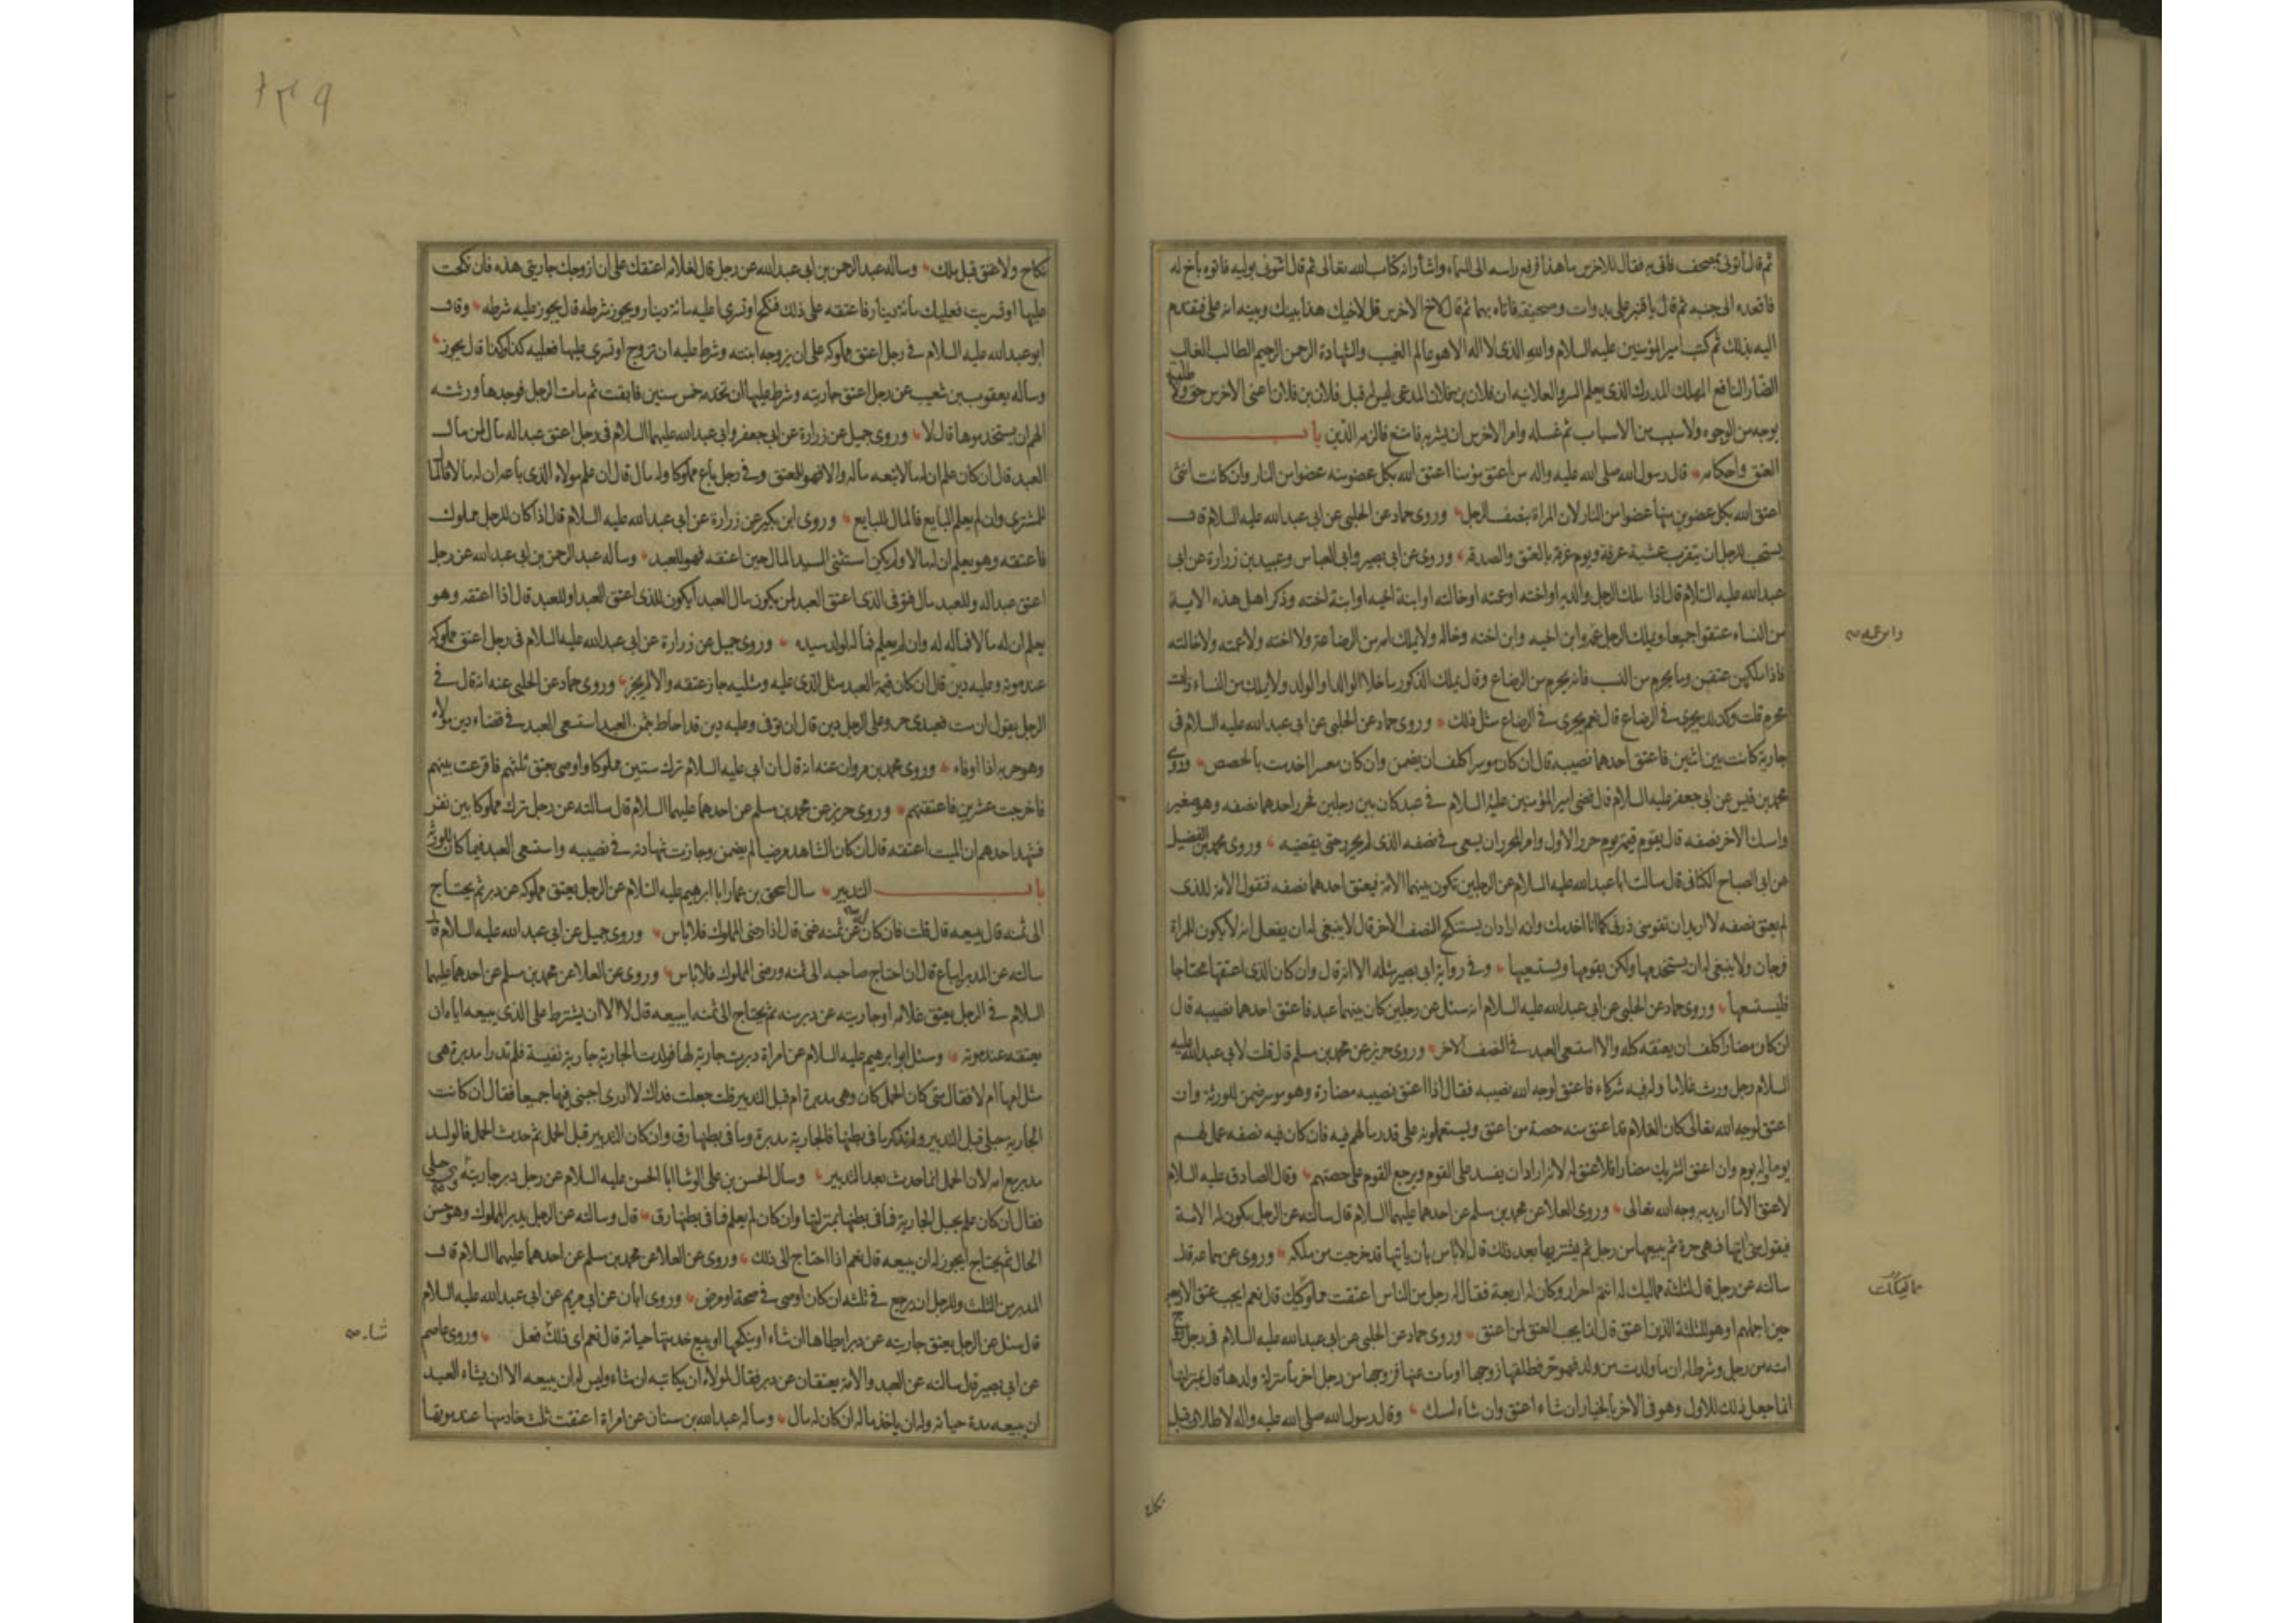 ثم قال ائتونى بمصحف فاتى به فقال للاخرس ما هذا فرفع راسه الى السماء واشار انه كتاب الله تعالى ثم قال ائتونى بوليه فاتوه باخ له
فاقعده الى جنبه ثم قال يا قنبر على بدوات وصحيفة فاتاه بهما ثم قال لاخ الاخرس قل لاخيك هذا بينك وبينه انه على فتقدم
اليه بذلك ثم كتب امير المؤمنين عليه السلام والله الذى لا اله الا هو عالم الغيب والشهادة الرحمن الرحيم الطالب الغالب
الضار النافع المهلك المدرك الذى يعلم السر والعلانيه ان فلان بن فلان المدعى ليس له قبل فلان بن فلان اعنى الاخرس حق ولا طلبة
بوجه من الوجوه ولا سبب من الاسباب ثم غسله وامر الاخرس ان يشربه فامتنع فالزمه الدين باب
العتق واحكامه قال رسول الله صلى الله عليه واله من اعتق مؤمنا اعتق الله بكل عضو منه عضوا من النار وان كانت انثى
اعتق الله بكل عضوين منها عضوا من النار لان المراة بنصف الرجل وروى حماد عن الحلبى عن ابى عبد الله عليه السلام قال
يستحب للرجل ان يتقرب عشية عرفة ويوم عرفة بالعتق والصدقه وروى عن ابى بصير وابى العباس وعبيد بن زرارة عن ابى
عبد الله عليه السلام قال اذا ملك الرجل والديه او اخته او عمته او خالته او ابنة اخيه او ابنة اخته وذكر اهل هذه الاية
من النساء عتقوا جميعا ويملك الرجل عمه وابن اخيه وابن اخته وخاله ولا يملك امه من الرضاعة ولا اخته ولا عمته ولا خالته
وابن عمه صح
فاذا ملكهن عتقن وما يحرم من النسب فانه يحرم من الرضاع وقال يملك الذكور ما خلا الوالد او الولد ولا يملك من النساء ذات
محرم قلت وكذلك يجرى فى الرضاع قال نعم يجرى فى الرضاع مثل ذلك وروى حماد عن الحلبى عن ابى عبد الله عليه السلام فى
جارية كانت بين اثنين فاعتق احدهما نصيبه قال ان كان موسرا كلف ان يضمن وان كان معسرا اخدمت بالحصص وروى
محمد بن قيس عن ابى جعفر عليه السلام قال قضى امير المؤمنين عليه السلام فى عبد كان بين رجلين فحرر احدهما نصفه وهو صغير
وامسك الاخر نصفه قال يقوم قيمته يوم حرر الاول وامر المحرر ان يسعى فى نصفه الذى لم يحرر حتى يقضيه وروى محمد بن الفضيل
عن ابى الصباح الكنانى قال سالت ابا عبد الله عليه السلام عن الرجلين تكون بينهما الامة فيعتق احدهما نصفه فتقول الامة للذى
لم يعتق نصفه لا اريد ان تقومنى ذرنى كما انا اخدمك وانه اراد ان يستنكح النصف الاخر قال لا ينبغى له ان يفعل انه لا يكون للمراة
فرجان ولا ينبغى له ان يستخدمها ولكن يقومها ويستسعيها وفى رواية ابى بصير مثله الا انه قال وان كان الذى اعتقها محتاجا
فليستسعها وروى حماد عن الحلبى عن ابى عبد الله عليه السلام انه سئل عن رجلين كان بينهما عبد فاعتق احدهما نصيبه قال
ان كان مضارا كلف ان يعتقه كله والا استسعى العبد فى النصف الاخر وروى حريز عن محمد بن مسلم قال قلت لابى عبد الله عليه
السلام رجل ورث غلاما وله فيه شركاء فاعتق لوجه الله نصيبه فقال اذا اعتق نصيبه مضارة وهو موسر ضمن للورثة وان
اعتق لوجه الله تعالى كان الغلام قد اعتق منه حصة من اعتق ويستعملونه على قدر ما لهم فيه فان كان فيه نصفه عمل لهم
يوما وله يوم وان اعتق الشريك مضارا فلا عتق له لانه اراد ان يفسد على القوم ويرجع القوم على حصتهم وقال الصادق عليه السلام
لا عتق الا ما اريد به وجه الله تعالى وروى العلا عن محمد بن مسلم عن احدهما عليهما السلام قال سالته عن الرجل يكون له الامة
فيقول متى اتيتها فهى حرة ثم يبيعها من رجل ثم يشتريها بعد ذلك قال لا باس بان ياتيها قد خرجت من ملكه وروى عن سماعه قال
سالته عن رجل قال لثلثة مماليك له انتم احرار وكان له اربعة فقال له رجل من الناس اعتقت مملوكيك قال نعم ايجب عتق الاربعة
مماليكك
حين اجملهم او هو للثلثة الذين اعتق قال انما يجب العتق لمن اعتق وروى حماد عن الحلبى عن ابى عبد الله عليه السلام فى رجل زوج
امته من رجل وشرط له ان ما ولدت من ولد فهو حر فطلقها زوجها او مات عنها فزوجها من رجل اخر ما منزلة ولدها قال بمنزلتها
انما جعل ذلك للاول وهو فى الاخر بالخيار ان شاء اعتق وان شاء امسك وقال رسول الله صلى الله عليه واله لا طلاق قبل
نكاح
نكاح ولا عتق قبل ملك وساله عبد الرحمن بن ابى عبد الله عن رجل قال لغلامه اعتقك على ان ازوجك جاريتى هذه فان نكحت
عليها او تسريت فعليك مائة دينار فاعتقه على ذلك فنكح او تسرى اعليه مائة دينار ويجوز شرطه قال يجوز عليه شرطه وقال
ابو عبد الله عليه السلام فى رجل اعتق مملوكه على ان يزوجه ابنته وشرط عليه ان تزوج او تسرى عليها فعليه كذا وكذا قال يجوز
وساله يعقوب بن شعيب عن رجل اعتق جاريته وشرط عليها ان تخدمه خمس سنين فابقت ثم مات الرجل فوجدها ورثته
الهم ان يستخدموها قال لا وروى جميل عن زرارة عن ابى جعفر وابى عبد الله عليهما السلام فى رجل اعتق عبدا له مال لمن مال
العبد قال ان كان علم ان له مالا تبعه ماله والا فهو للمعتق وفى رجل باع مملوكا وله مال قال ان علم مولاه الذى باعه ان له مالا فالمال
للمشترى وان لم يعلم البايع فالمال للبايع وروى ابن بكير عن زرارة عن ابى عبد الله عليه السلام قال اذا كان للرجل مملوك
فاعتقه وهو يعلم ان له مالا ولم يكن استثنى السيد المال حين اعتقه فهو للعبد وساله عبد الرحمن بن ابى عبد الله عن رجل
اعتق عبدا له وللعبد مال فتوفى الذى اعتق العبد لمن يكون مال العبد ايكون للذى اعتق العبد او للعبد قال اذا اعتقه وهو
يعلم ان له مالا فماله له وان لم يعلم فماله لولد سيده وروى جميل عن زرارة عن ابى عبد الله عليه السلام فى رجل اعتق مملوكه
عند موته وعليه دين قال ان كان قيمة العبد مثل الذى عليه ومثليه جاز عتقه والا لم يجز وروى حماد عن الحلبى عنه انه قال فى
الرجل يقول ان مت فعبدى حر وعلى الرجل دين قال ان توفى وعليه دين قد احاط بثمن العبد استسعى العبد فى قضاء دين مولاه
وهو حر به اذا اوفاه وروى محمد بن مروان عنه انه قال ان ابى عليه السلام ترك ستين مملوكا واوصى بعتق ثلثهم فاقرعت بينهم
فاخرجت عشرين فاعتقتهم وروى حريز عن محمد بن مسلم عن احدهما عليهما السلام قال سالته عن رجل ترك مملوكا بين نفر
فشهد احدهم ان الميت اعتقه قال ان كان الشاهد مرضيا لم يضمن وجازت شهادته فى نصيبه واستسعى العبد فيما كان للورثة
باب التدبير سال اسحق بن عمار ابا ابرهيم عليه السلام عن الرجل يعتق مملوكه عن دبر ثم يحتاج
الى ثمنه قال يبيعه قال قلت فان كان عن ثمنه غنى قال اذا رضى المملوك فلا باس وروى جميل عن ابى عبد الله عليه السلام قال
سالته عن المدبر ايباع قال ان احتاج صاحبه الى ثمنه ورضى المملوك فلا باس وروى عن العلا عن محمد بن مسلم عن احدهما عليهما
السلام فى الرجل يعتق غلامه او جاريته عن دبر منه ثم يحتاج الى ثمنه ايبيعه قال لا الا ان يشترط على الذى يبيعه اياه ان
يعتقه عند موته وسئل ابو ابرهيم عليه السلام عن امراة دبرت جارية لها فولدت الجارية جارية نفيسة فلم تدر امدبرة هى
مثل امها ام لا فقال متى كان الحمل كان وهى مدبرة ام قبل التدبير قلت جعلت فداك لا ادرى اجبنى فيهما جميعا فقال ان كانت
الجارية حبلى قبل التدبير ولم تذكر ما فى بطنها فالجارية مدبرة وما فى بطنها رق وان كان التدبير قبل الحمل ثم حدث الحمل فالولد
مدبر مع امه لان الحمل انما حدث بعد التدبير وسال الحسن بن على الوشا ابا الحسن عليه السلام عن رجل دبر جاريته وهى حبلى
فقال ان كان علم بحبل الجارية فما فى بطنها بمنزلتها وان كان لم يعلم فما فى بطنها رق قال وسالته عن الرجل يدبر المملوك وهو حسن
الحال ثم يحتاج ايجوز له ان يبيعه قال نعم اذا احتاج الى ذلك وروى عن العلا عن محمد بن مسلم عن احدهما عليهما السلام قال
المدبر من الثلث وللرجل ان يرجع فى ثلثه ان كان اوصى فى صحة او مرض وروى ابان عن ابى مريم عن ابى عبد الله عليه السلام
قال سئل عن الرجل يعتق جاريته عن دبر ايطاها ان شاء او ينكحها او يبيع خدمتها حياته قال نعم اى ذلك فعل وروى عاصم
شاء صح
عن ابى بصير قال سالته عن العبد والامة يعتقان عن دبر فقال لمولاه ان يكاتبه ان شاء وليس له ان يبيعه الا ان يشاء العبد
ان يبيعه مدة حياته وله ان ياخذ ماله ان كان له مال وساله عبد الله بن سنان عن امراة اعتقت ثلث خادمها عند موتها